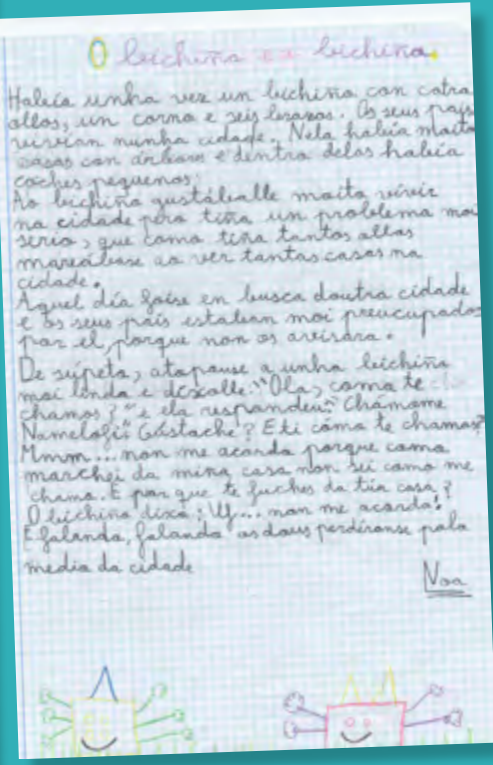 O bichiño e a bichiña.
Había unha vez un bichiño con catro
ollos, un corno e seis brazos. Os seus pais
vivían nunha cidade. Nela había moitas
casas con árbores e dentro delas había
coches pequenos.
Ao bichiño gustáballe moito vivir
na cidade pero tiña un problema moi
serio, que como tiña tantos ollos
mareábase ao ver tantas casas na
cidade.
Aquel día foise en busca doutra cidade
e os seus pais estaban moi preocupados
por el, porque non os avisara.
De súpeto, atopouse a unha bichiña
moi linda e díxolle: "Ola, como te
chamas?" e ela respondeu: "Chámome
Namelofi". Gústache? E ti como te chamas?
Mmm... non me acordo porque como
marchei da miña casa non sei como me
chamo. E por que te fuches da túa casa?
O bichiño dixo: Uf... non me acordo!
E falando, falando os dous perdéronse polo
medio da cidade
Noa